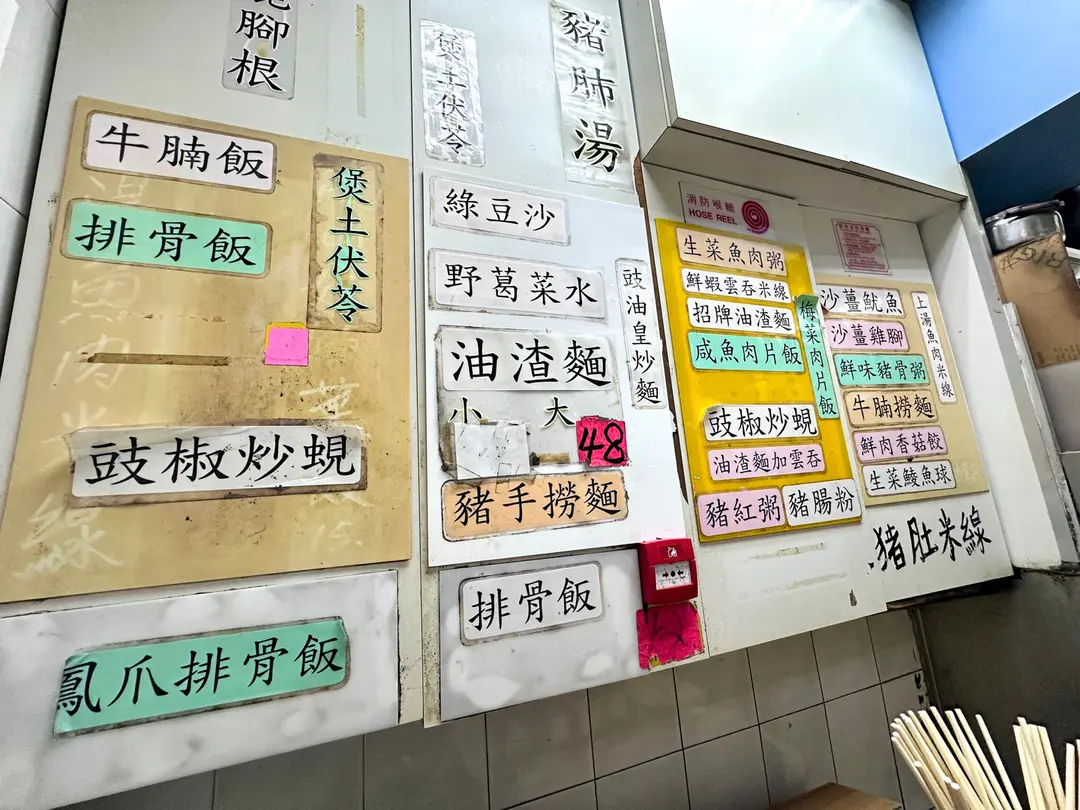 腳根
牛腩飯
排骨飯
煲土伏苓
豉椒炒蜆
鳳爪排骨飯
煲土伏苓
豬肺湯
綠豆沙
野葛菜水
豉油皇炒麵
油渣麵
小 大
48
豬手撈麵
排骨飯
消防喉轆
HOSE REEL
生菜魚肉粥
鮮蝦雲吞米線
招牌油渣麵
咸魚肉片飯
梅菜肉片飯
豉椒炒蜆
油渣麵加雲吞
豬紅粥
豬腸粉
沙薑魷魚
沙薑雞腳
鮮味豬骨粥
牛腩撈麵
鮮肉香菇餃
生菜鯪魚球
上湯魚肉米線
猪肚米線